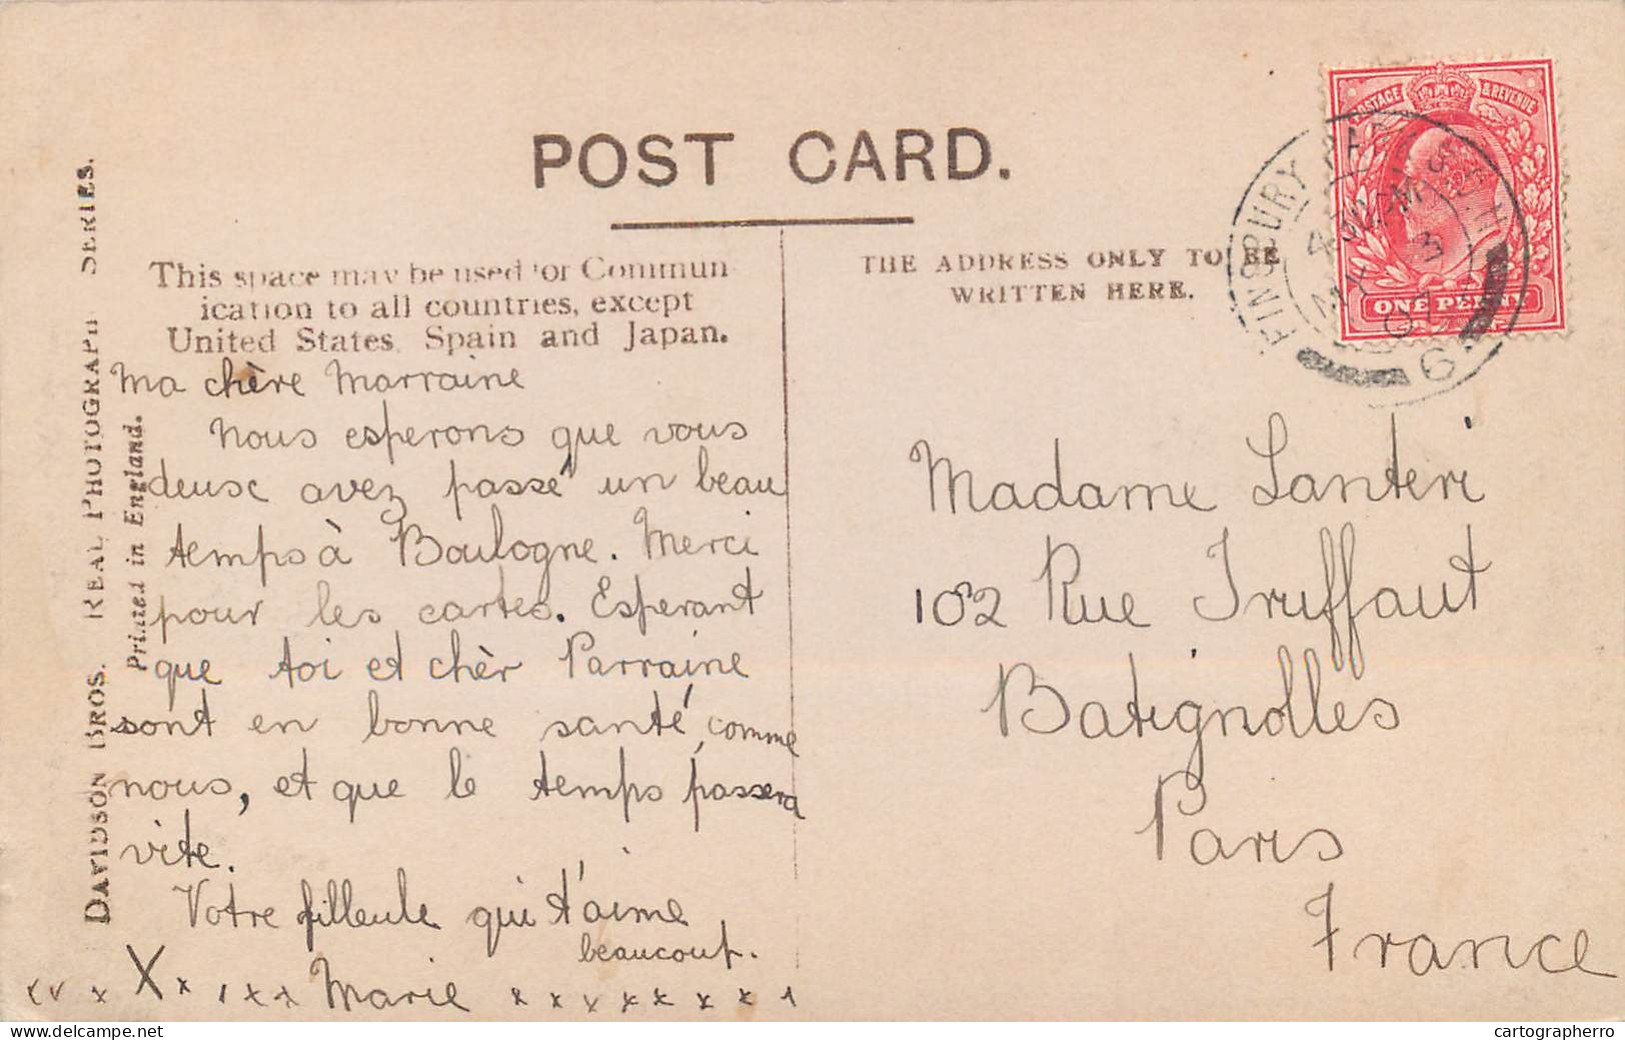 POST CARD.
This space may be used for Commun
ication to all countries, except
United States, Spain and Japan.
THE ADDRESS ONLY TO BE
WRITTEN HERE.
DAVIDSON BROS. REAL PHOTOGRAPH SERIES.
Printed in England.
POSTAGE & REVENUE
ONE PENNY
FINSBURY PARK
6
Ma chère Marraine
Nous esperons que vous
deux avez passé un beau
temps à Boulogne. Merci
pour les cartes. Esperant
que toi et chèr Parraine
sont en bonne santé, comme
nous, et que le temps passera
vite.
Votre filleule qui t'aime
beaucoup.
Marie
Madame Lanteri
102 Rue Truffaut
Batignolles
Paris
France
delcampe.net
cartographerro